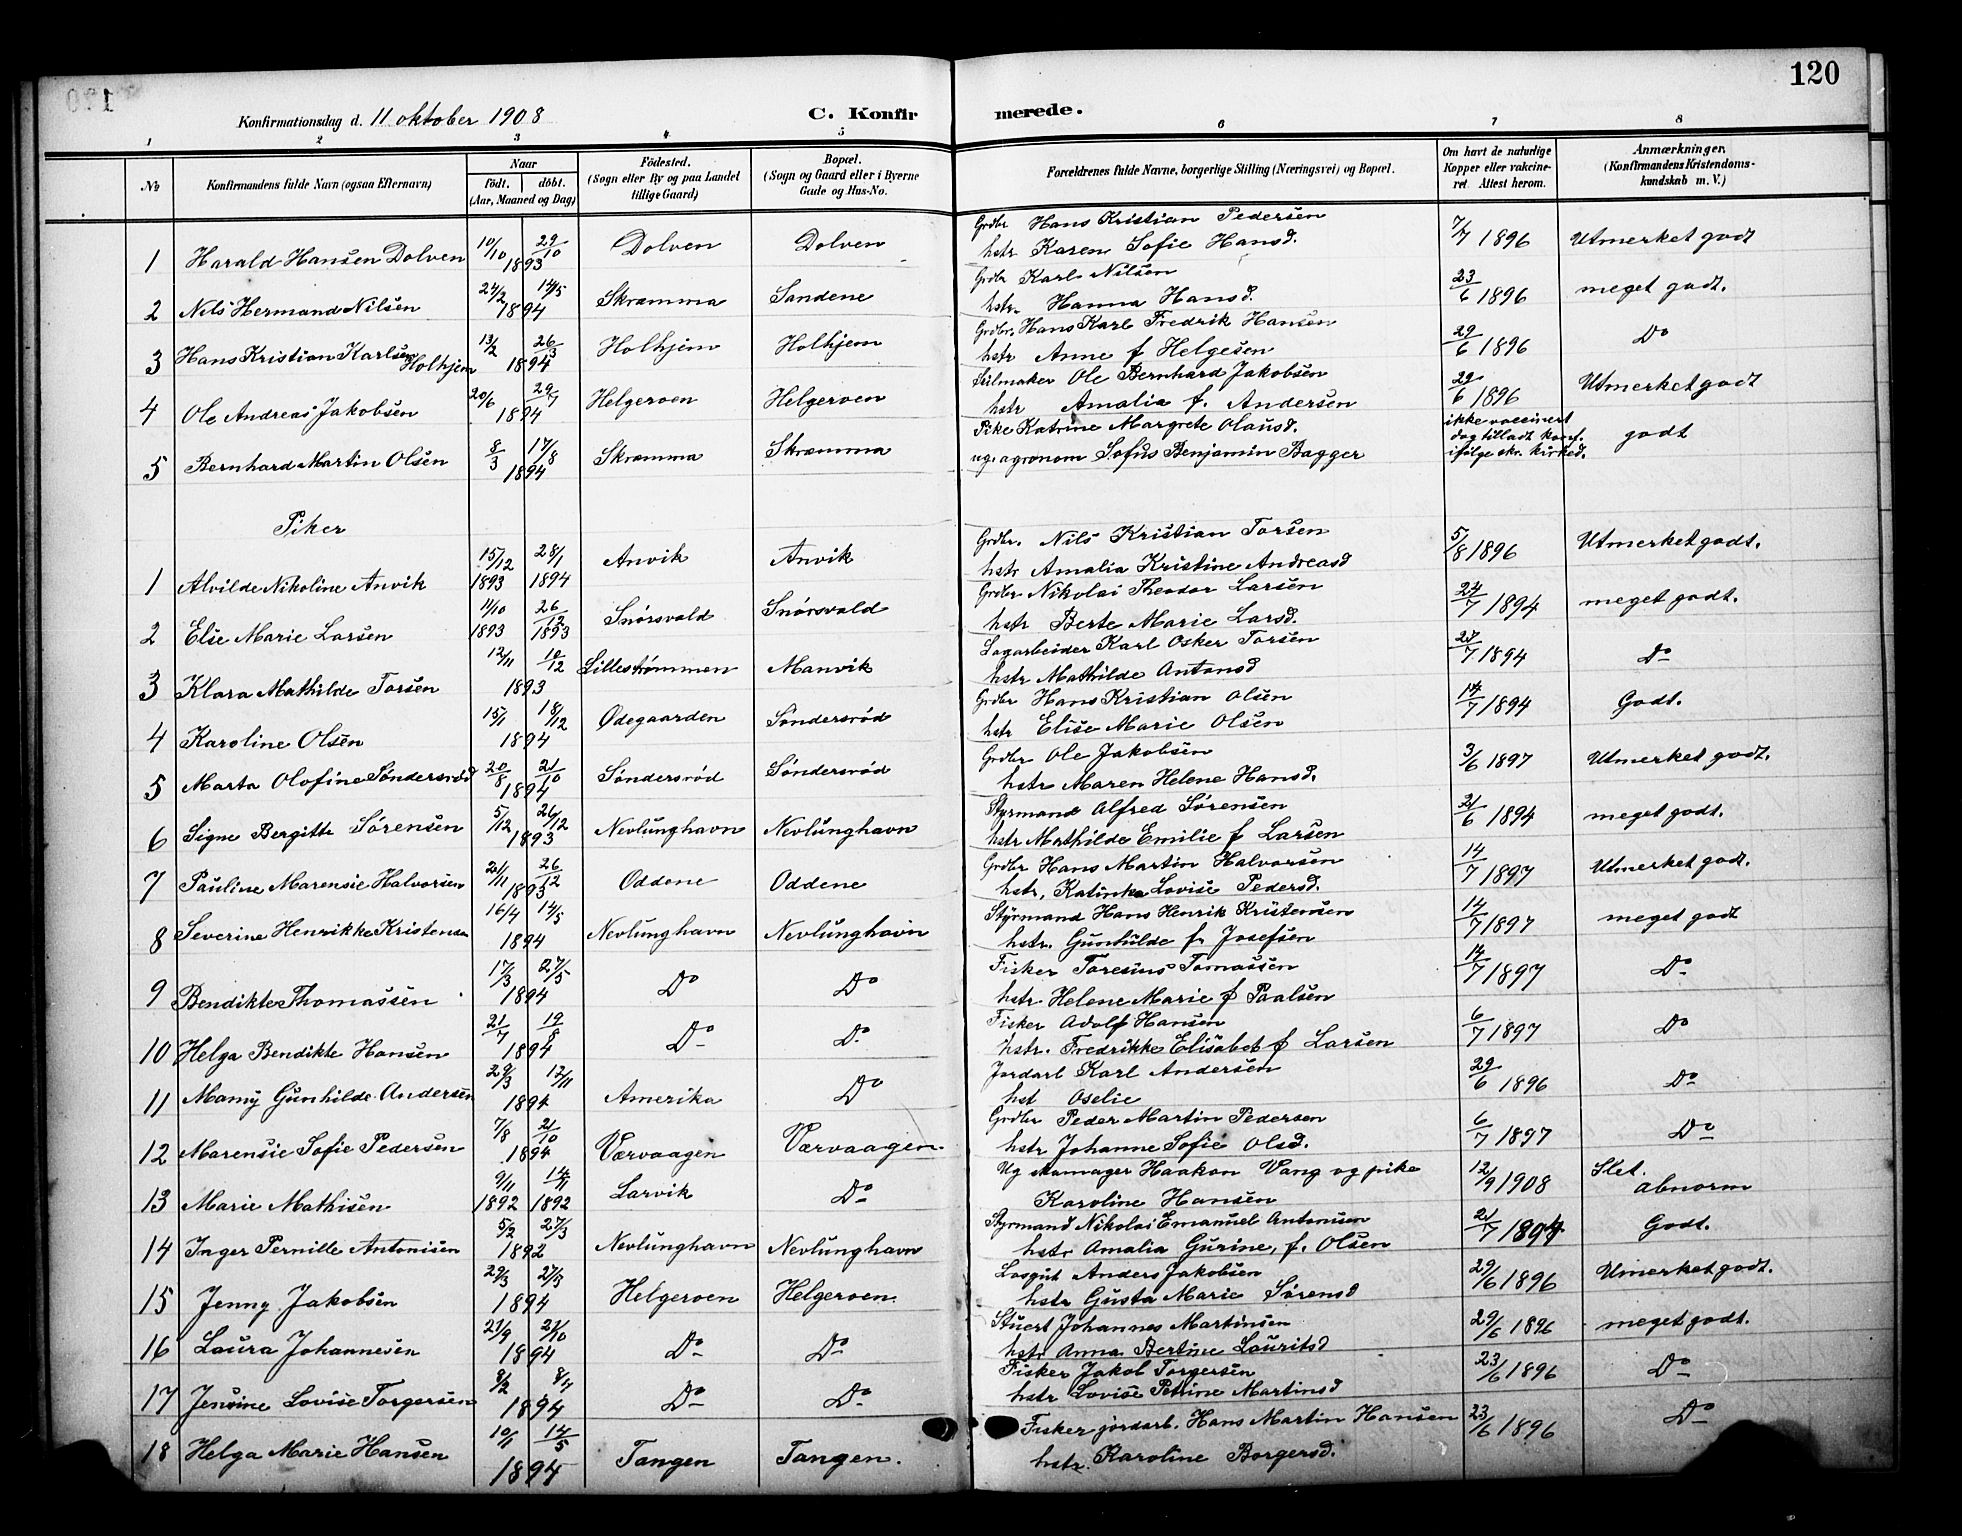 120
Konfirmationsdag d. 11 oktober 1908 C. Konfirmerede.
1 2 3 4 5 6 7 8
No Konfirmandens fulde Navn (ogsaa Efternavn) Naar födt. döbt. (Aar, Maaned og Dag) Födested. (Sogn eller By og paa Landet tillige Gaard) Bopæl. (Sogn og Gaard eller i Byerne Gade og Hus-No. Forældrenes fulde Navne, borgerlige Stilling (Næringsvei) og Bopæl. Om havt de naturlige Kopper eller vakcineret. Attest herom. Anmærkninger. (Konfirmandens Kristendomskundskab m. V.)
1 Harald Hansen Dolven 10/10 29/10 1893 Dolven Dolven Grdbr Hans Kristian Pedersen hstr Karen Sofie Hansd. 7/7 1896 Utmerket godt
2 Nils Hermand Nilsen 24/2 14/5 1894 Skræmma Sandene Grdbr Karl Nilsen hstr. Hanna Hansd. 23/6 1896 meget godt.
3 Hans Kristian Karlsen Holhjem 13/2 26/3 1894 Holhjem Holhjem Grdbr. Hans Karl Fredrik Hansen hstr Anne f Helgesen 29/6 1896 Do
4 Ole Andreas Jakobsen 20/6 29/7 1894 Helgeroen Helgeroen Seilmaker Ole Bernhard Jakobsen hstr Amalia f. Andersen 29/6 1896 Utmerket godt
5 Bernhard Martin Olsen 8/3 17/8 1894 Skræmma Skræmma Pike Katrine Margrete Olausd. ug. agronom Sofus Benjamin Bagger ikke vaccinert dog tilladt konf. ifølge skr. kirked. godt
Piker
1 Alvilde Nikoline Anvik 15/12 1893 28/1 1894 Anvik Anvik Grdbr. Nils Kristian Torsen hstr Amalia Kristine Andreasd 5/8 1896 Utmerket godt.
2 Else Marie Larsen 11/10 1893 26/12 1893 Snörsvald Snörsvald Grdbr Nikolai Theodor Larsen hstr Berte Marie Larsd. 24/7 1894 meget godt.
3 Klara Mathilde Torsen 12/11 10/12 1893 Lillestrømmen Manvik Sagarbeider Karl Osker Torsen hstr Mathilde Antonsd 27/7 1894 Do
4 Karoline Olsen 15/1 18/12 1894 Ødegaarden Söndersröd Grdbr Hans Kristian Olsen hstr Elise Marie Olsen 14/7 1894 Godt.
5 Marta Olofine Söndersröd 20/8 21/10 1894 Söndersröd Söndersröd Grdbr Ole Jakobsen hstr Maren Helene Hansd. 3/6 1897 Utmerket godt.
6 Signe Bergitte Sørensen 5/12 26/12 1893 Nevlunghavn Nevlunghavn Styrmand Alfred Sørensen hstr Mathilde Emilie f Larsen 21/6 1894 meget godt.
7 Pauline Marensie Halvorsen 21/11 26/12 1893 Oddene Oddene Grdbr Hans Martin Halvorsen hstr. Katinka Lovise Pedersd. 14/7 1897 Utmerket godt.
8 Severine Henrikke Kristensen 16/4 14/5 1894 Nevlunghavn Nevlunghavn Styrmand Hans Henrik Kristensen hstr. Gunhilde f. Josefsen 14/7 1897 meget godt
9 Bendikte Thomassen 17/3 27/5 1894 Do Do Fisker Toresius Tomassen hstr. Helene Marie f Paalsen 14/7 1897 Do
10 Helga Bendikte Hansen 21/7 19/8 1894 Do Do Fisker Adolf Hansen hstr. Fredrikke Elisabet f Larsen 6/7 1897 Do
11 Mamy Gunhilde Andersen 29/3 12/11 1894 Amerika Do Jordarb Karl Andersen hst Oselie 29/6 1896 Do
12 Marensie Sofie Pedersen 7/8 21/10 1894 Værvaagen Værvaagen Grdbr Peder Martin Pedersen hstr Johanne Sofie Olsd. 6/7 1897 Do
13 Marie Mathisen 9/11 1892 14/11 1892 Larvik Do Ug skomager Haakon Vang og pike Karoline Hansen 12/9 1908 Slet. abnorm
14 Inger Pernille Antonisen 5/2 27/3 1892 Nevlunghavn Nevlunghavn Styrmand Nikolai Emanuel Antonisen hstr Amalia Gurine, f. Olsen 21/7 1894 Godt.
15 Jenny Jakobsen 29/3 27/5 1894 Helgeroen Helgeroen. Losgut Anders Jakobsen hstr Gusta Marie Sörensd 29/6 1896 Umerket godt.
16 Laura Johannesen 21/9 21/10 1894 Do Do Stuert Johannes Martinsen hstr Anna Bertine Lauritsd 29/6 1896 meget godt.
17 Jensine Lovise Torgersen 8/2 8/7 1894 Do Do Fisker Jakob Torgersen hstr Lovise Petrine Martinsd 23/6 1896 Do
18 Helga Marie Hansen 10/1 14/5 1894 Tangen Tangen. Fisker jordarb. Hans Martin Hansen hstr. Karoline Borgersd. 23/6 1896 Do